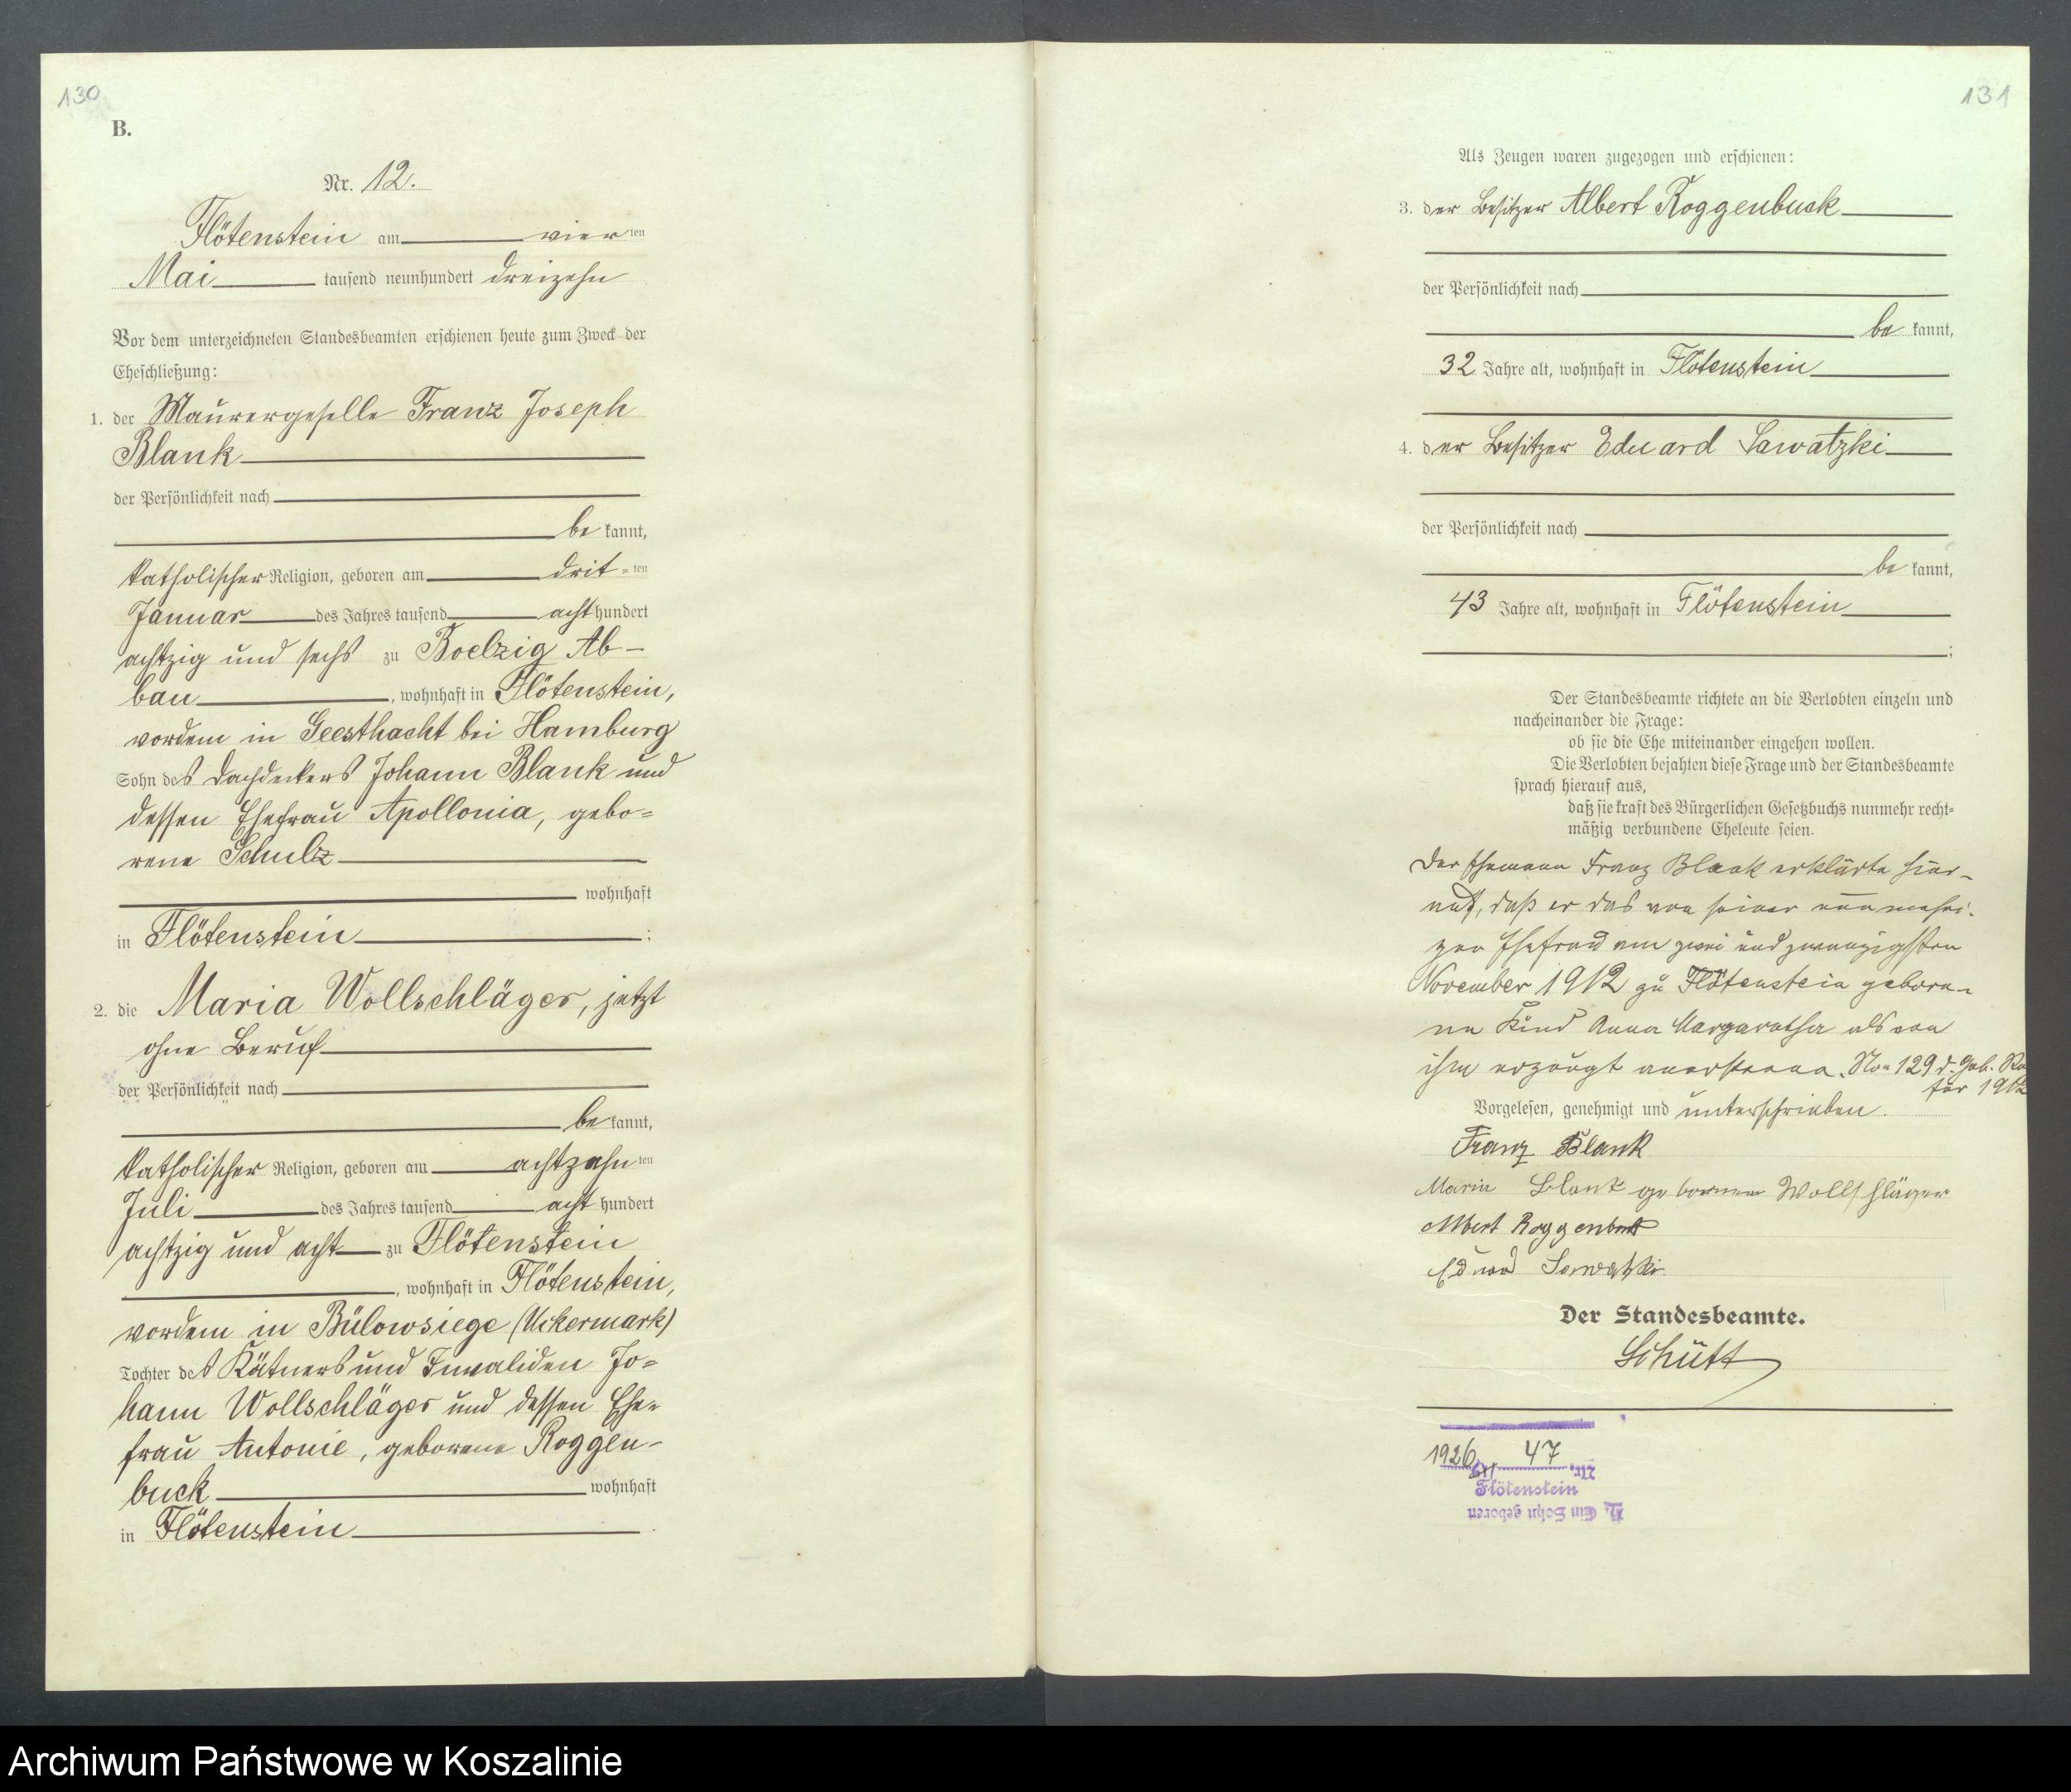 130
B.
Nr. 12.
Flötenstein am vierten
Mai tausend neunhundert dreizehn
Vor dem unterzeichneten Standesbeamten erschienen heute zum Zweck der
Eheschließung:
1. der Maurergeselle Franz Joseph
Blank
der Persönlichkeit nach
be kannt,
katholischer Religion, geboren am drit=ten
Januar des Jahres tausend acht hundert
achtzig und sechs zu Boelzig Ab-
bau, wohnhaft in Flötenstein,
vordem in Geesthacht bei Hamburg
Sohn des Dachdeckers Johann Blank und
dessen Ehefrau Apollonia, gebo=
rene Schulz
wohnhaft
in Flötenstein ;
2. die Maria Wollschläger, jetzt
ohne Beruf
der Persönlichkeit nach
be kannt,
katholischer Religion, geboren am achtzehnten
Juli des Jahres tausend acht hundert
achtzig und acht zu Flötenstein
, wohnhaft in Flötenstein,
vordem in Bülowsiege (Uckermark)
Tochter des Kätners und Invaliden Jo=
hann Wollschläger und dessen Ehe=
frau Antonie, geborene Roggen-
buck wohnhaft
in Flötenstein
131
Als Zeugen waren zugezogen und erschienen:
3. der Besitzer Albert Roggenbuck
der Persönlichkeit nach
be kannt,
32 Jahre alt, wohnhaft in Flötenstein
4. der Besitzer Eduard Sawatzki
der Persönlichkeit nach
be kannt,
43 Jahre alt, wohnhaft in Flötenstein
;
Der Standesbeamte richtete an die Verlobten einzeln und
nacheinander die Frage:
ob sie die Ehe miteinander eingehen wollen.
Die Verlobten bejahten diese Frage und der Standesbeamte
sprach hierauf aus,
daß sie kraft des Bürgerlichen Gesetzbuchs nunmehr recht=
mäßig verbundene Eheleute seien.
Der Ehemann Franz Blank erklärte hier-
auf, daß er das von seiner nunmehri-
gen Ehefrau am zwei und zwanzigsten
November 1912 zu Flötenstein gebore-
ne Kind Anna Margarethe als von
ihm erzeugt anerkenne. No= 129 d. Geb. Re
für 1912
Vorgelesen, genehmigt und unterschrieben.
Franz Blank
Maria Blank geborene Wollschläger
Albert Roggenbuck
Eduard Sawatzki
Der Standesbeamte.
Schütt
1926 47 Nr.
Flötenstein
Ein Sohn geboren
Archiwum Państwowe w Koszalinie